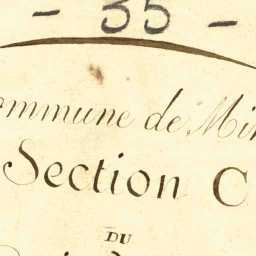 - 35 -
ommune de Mi
Section C
DU